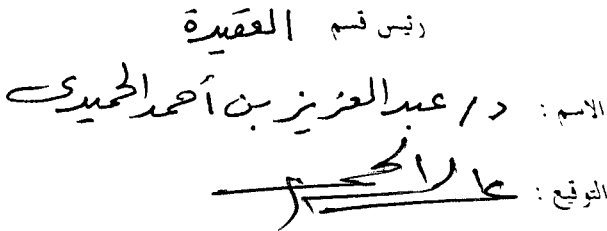 رئيس قسم العقيدة
الاسم : د/ عبد العزيز بن أحمد الحميدى
التوقيع :